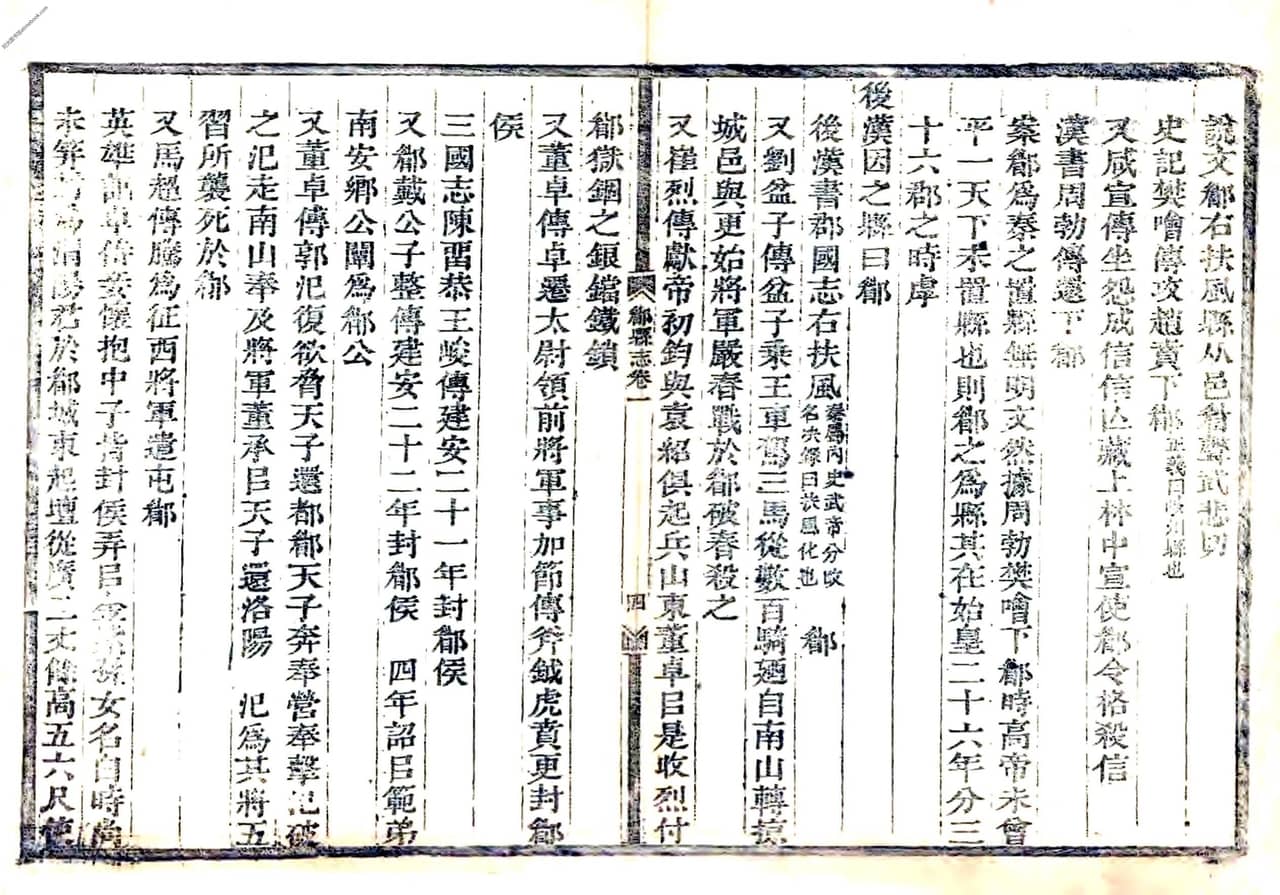 說文郿右扶風縣从邑眉聲武悲切
史記樊噲傳攻趙賁下郿正義曰岐州縣也
又咸宣傳坐怨成信信亾藏上林中宣使郿令格殺信
漢書周勃傳還下郿
案郿爲秦之置縣無明文然據周勃樊噲下郿時高帝未曾
平一天下未置縣也則郿之爲縣其在始皇二十六年分三
十六郡之時虖
後漢因之縣曰郿
後漢書郡國志右扶風秦屬內史武帝分改名決錄曰扶風化也 郿
又劉盆子傳盆子乘王車駕三馬從數百騎廼自南山轉掠
城邑與更始將軍嚴春戰於郿破春殺之
又崔烈傳獻帝初鈞與袁紹俱起兵山東董卓㠯是收烈付
郿獄錮之鋃鐺鐵鎖
又董卓傳卓遷太尉領前將軍事加節傳斧鉞虎賁更封郿
侯
三國志陳畱恭王峻傳建安二十一年封郿侯
又郿戴公子整傳建安二十二年封郿侯 四年詔㠯範弟
南安鄉公闡爲郿公
又董卓傳郭汜復欲脅天子還都郿天子奔奉營奉擊汜破
之汜走南山奉及將軍董承㠯天子還洛陽 汜爲其將五
習所襲死於郿
又馬超傳騰爲征西將軍遣屯郿
英雄記卓侍妾懷抱中子皆封侯弄㠯金紫孫女名白時尚
未笄封爲渭陽君於郿城東起壇從廣二丈餘高五六尺使
郿縣志卷一
四